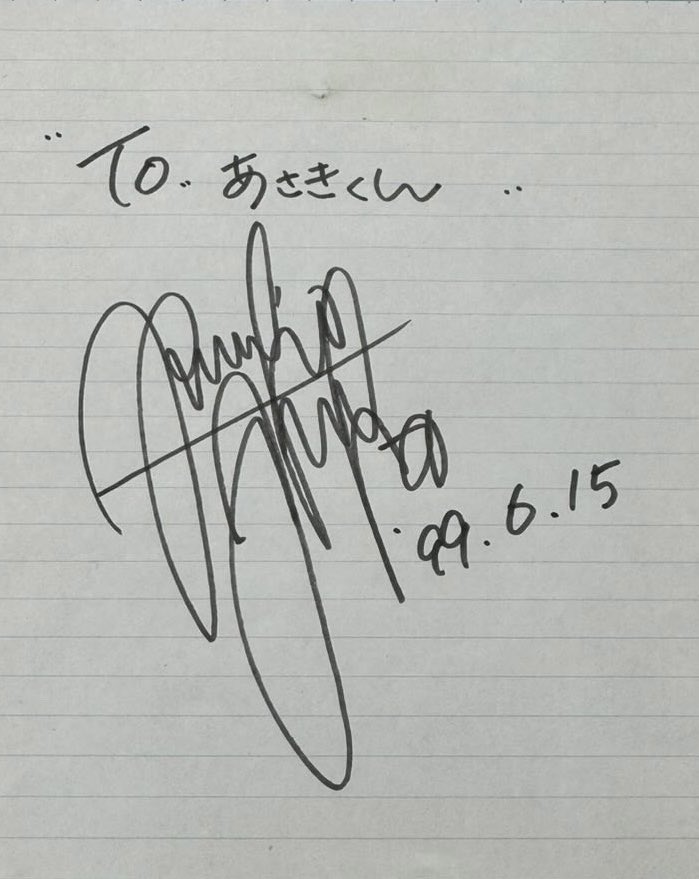 "To." あさきくん "
'99.6.15